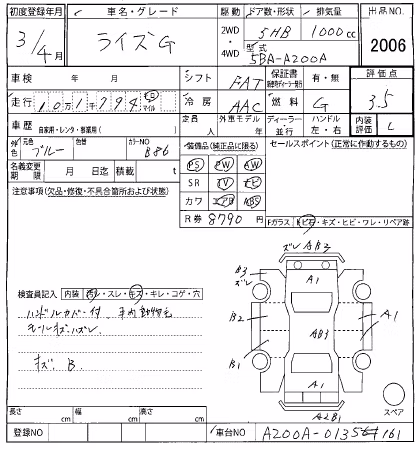 初度登録年月 車名・グレード 駆動 ドア数・形状 排気量 出品NO.
3/4月 ライズG 2WD・4WD 5HB 1000cc
型式 5BA-A200A 2006
車検 年 月 シフト FAT 保証書 有・無 評価点
走行 10万1千794 マイル 冷房 AAC 燃料 G 3.5
車歴 自家用・レンタ・事業用( ) 定員 人 外車モデル 年 ディーラー・並行 ハンドル 左・右 内装評価 C
外色 元色 ブルー 色替 カラーNO B86
装備品(純正品に限る) セールスポイント(正常に作動するもの)
名義変更期限 月 日迄 積載 t
PS PW AW
SR TV
カワ エアB ABS
R券 8790 円
注意事項(欠品・修復・不具合箇所および状態)
Fガラス ヒ石・キズ・ヒビ・ワレ・リペア跡
ズレ AB3
B3 ズレ A1
検査員記入 内装 ヨゴレ・スレ・キズ・キレ・コゲ・穴
ハンドルカバー付
モールキズハズレ
キズ B
B2 AB3 A1
B1
A1
A2B1
スペア
長さ cm 幅 cm 高さ cm
登録NO 車台NO A200A-0135 161